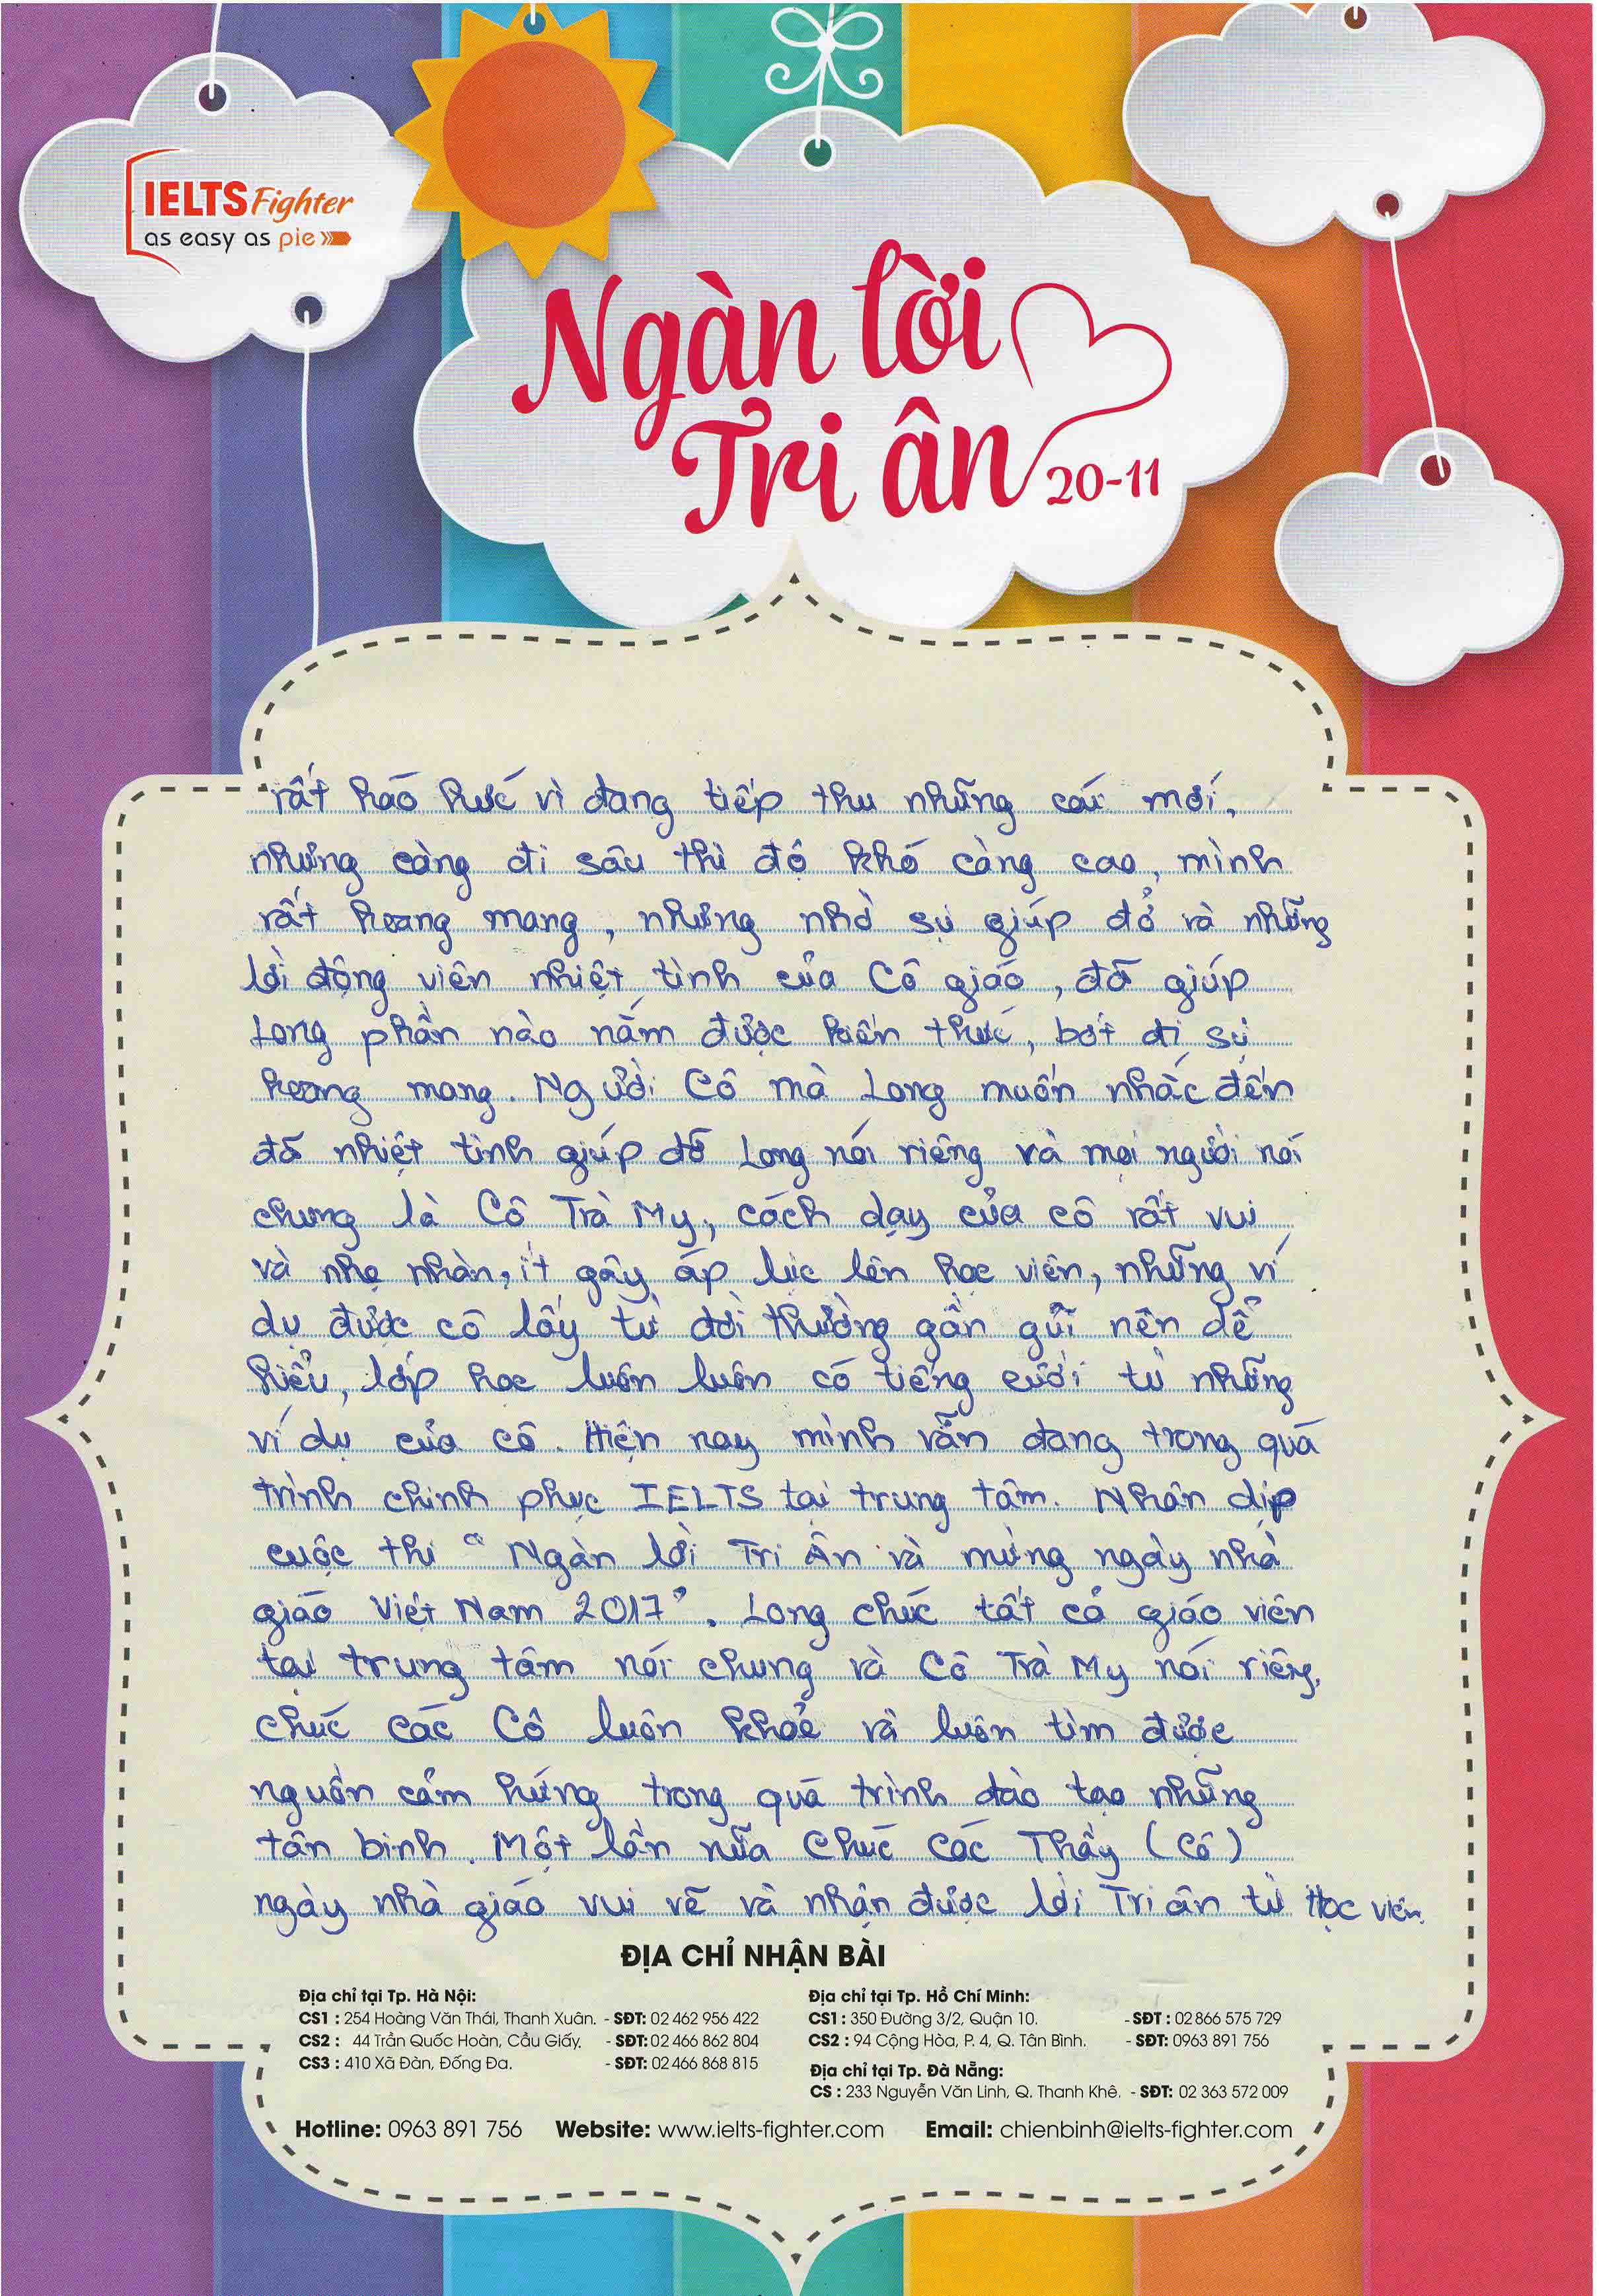 IELTS Fighter
as easy as pie
Ngàn lời
Tri ân
20-11
rất háo hức vì đang tiếp thu những cái mới,
nhưng càng đi sâu thì độ khó càng cao, mình
rất hoang mang, nhưng nhờ sự giúp đỏ và những
lời động viên nhiệt tình của Cô giáo, đã giúp
Long phần nào nắm được kiến thức, bớt đi sự
hoang mang. Người Cô mà Long muốn nhắc đến
đã nhiệt tình giúp đỡ Long nói riêng và mọi người nói
chung là Cô Trà My, cách dạy của cô rất vui
và nhẹ nhàn, ít gây áp lực lên học viên, những ví
dụ được cô lấy từ đời thường gần gũi nên dể
hiểu, lớp học luôn luôn có tiếng cười từ những
ví dụ của cô. Hiện nay mình vẫn đang trong quá
trình chinh phục IELTS tại trung tâm. Nhân dịp
cuộc thi " Ngàn lời Tri Ân và mừng ngày nhà
giáo Việt Nam 2017". Long chúc tất cả giáo viên
tại trung tâm nói chung và Cô Trà My nói riêng,
chúc các Cô luôn khoẻ và luôn tìm được
nguồn cảm hứng trong quá trình đào tạo những
tân binh. Một lần nữa Chúc Các Thầy (Cô)
ngày nhà giáo vui vẽ và nhận được lời Tri ân từ Học viên.
ĐỊA CHỈ NHẬN BÀI
Địa chỉ tại Tp. Hà Nội:
CS1 : 254 Hoàng Văn Thái, Thanh Xuân. - SĐT: 02 462 956 422
CS2 : 44 Trần Quốc Hoàn, Cầu Giấy. - SĐT: 02 466 862 804
CS3 : 410 Xã Đàn, Đống Đa. - SĐT: 02 466 868 815
Địa chỉ tại Tp. Hồ Chí Minh:
CS1 : 350 Đường 3/2, Quận 10. - SĐT : 02 866 575 729
CS2 : 94 Cộng Hòa, P. 4, Q. Tân Bình. - SĐT: 0963 891 756
Địa chỉ tại Tp. Đà Nẵng:
CS : 233 Nguyễn Văn Linh, Q. Thanh Khê. - SĐT: 02 363 572 009
Hotline: 0963 891 756 Website: www.ielts-fighter.com Email: chienbinh@ielts-fighter.com